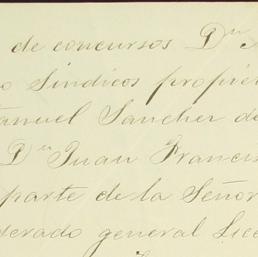 de concursos Dn
o Sindicos propie
anuel Sancher de
Dn Juan Francis
parte de la Señor
derado general Lice